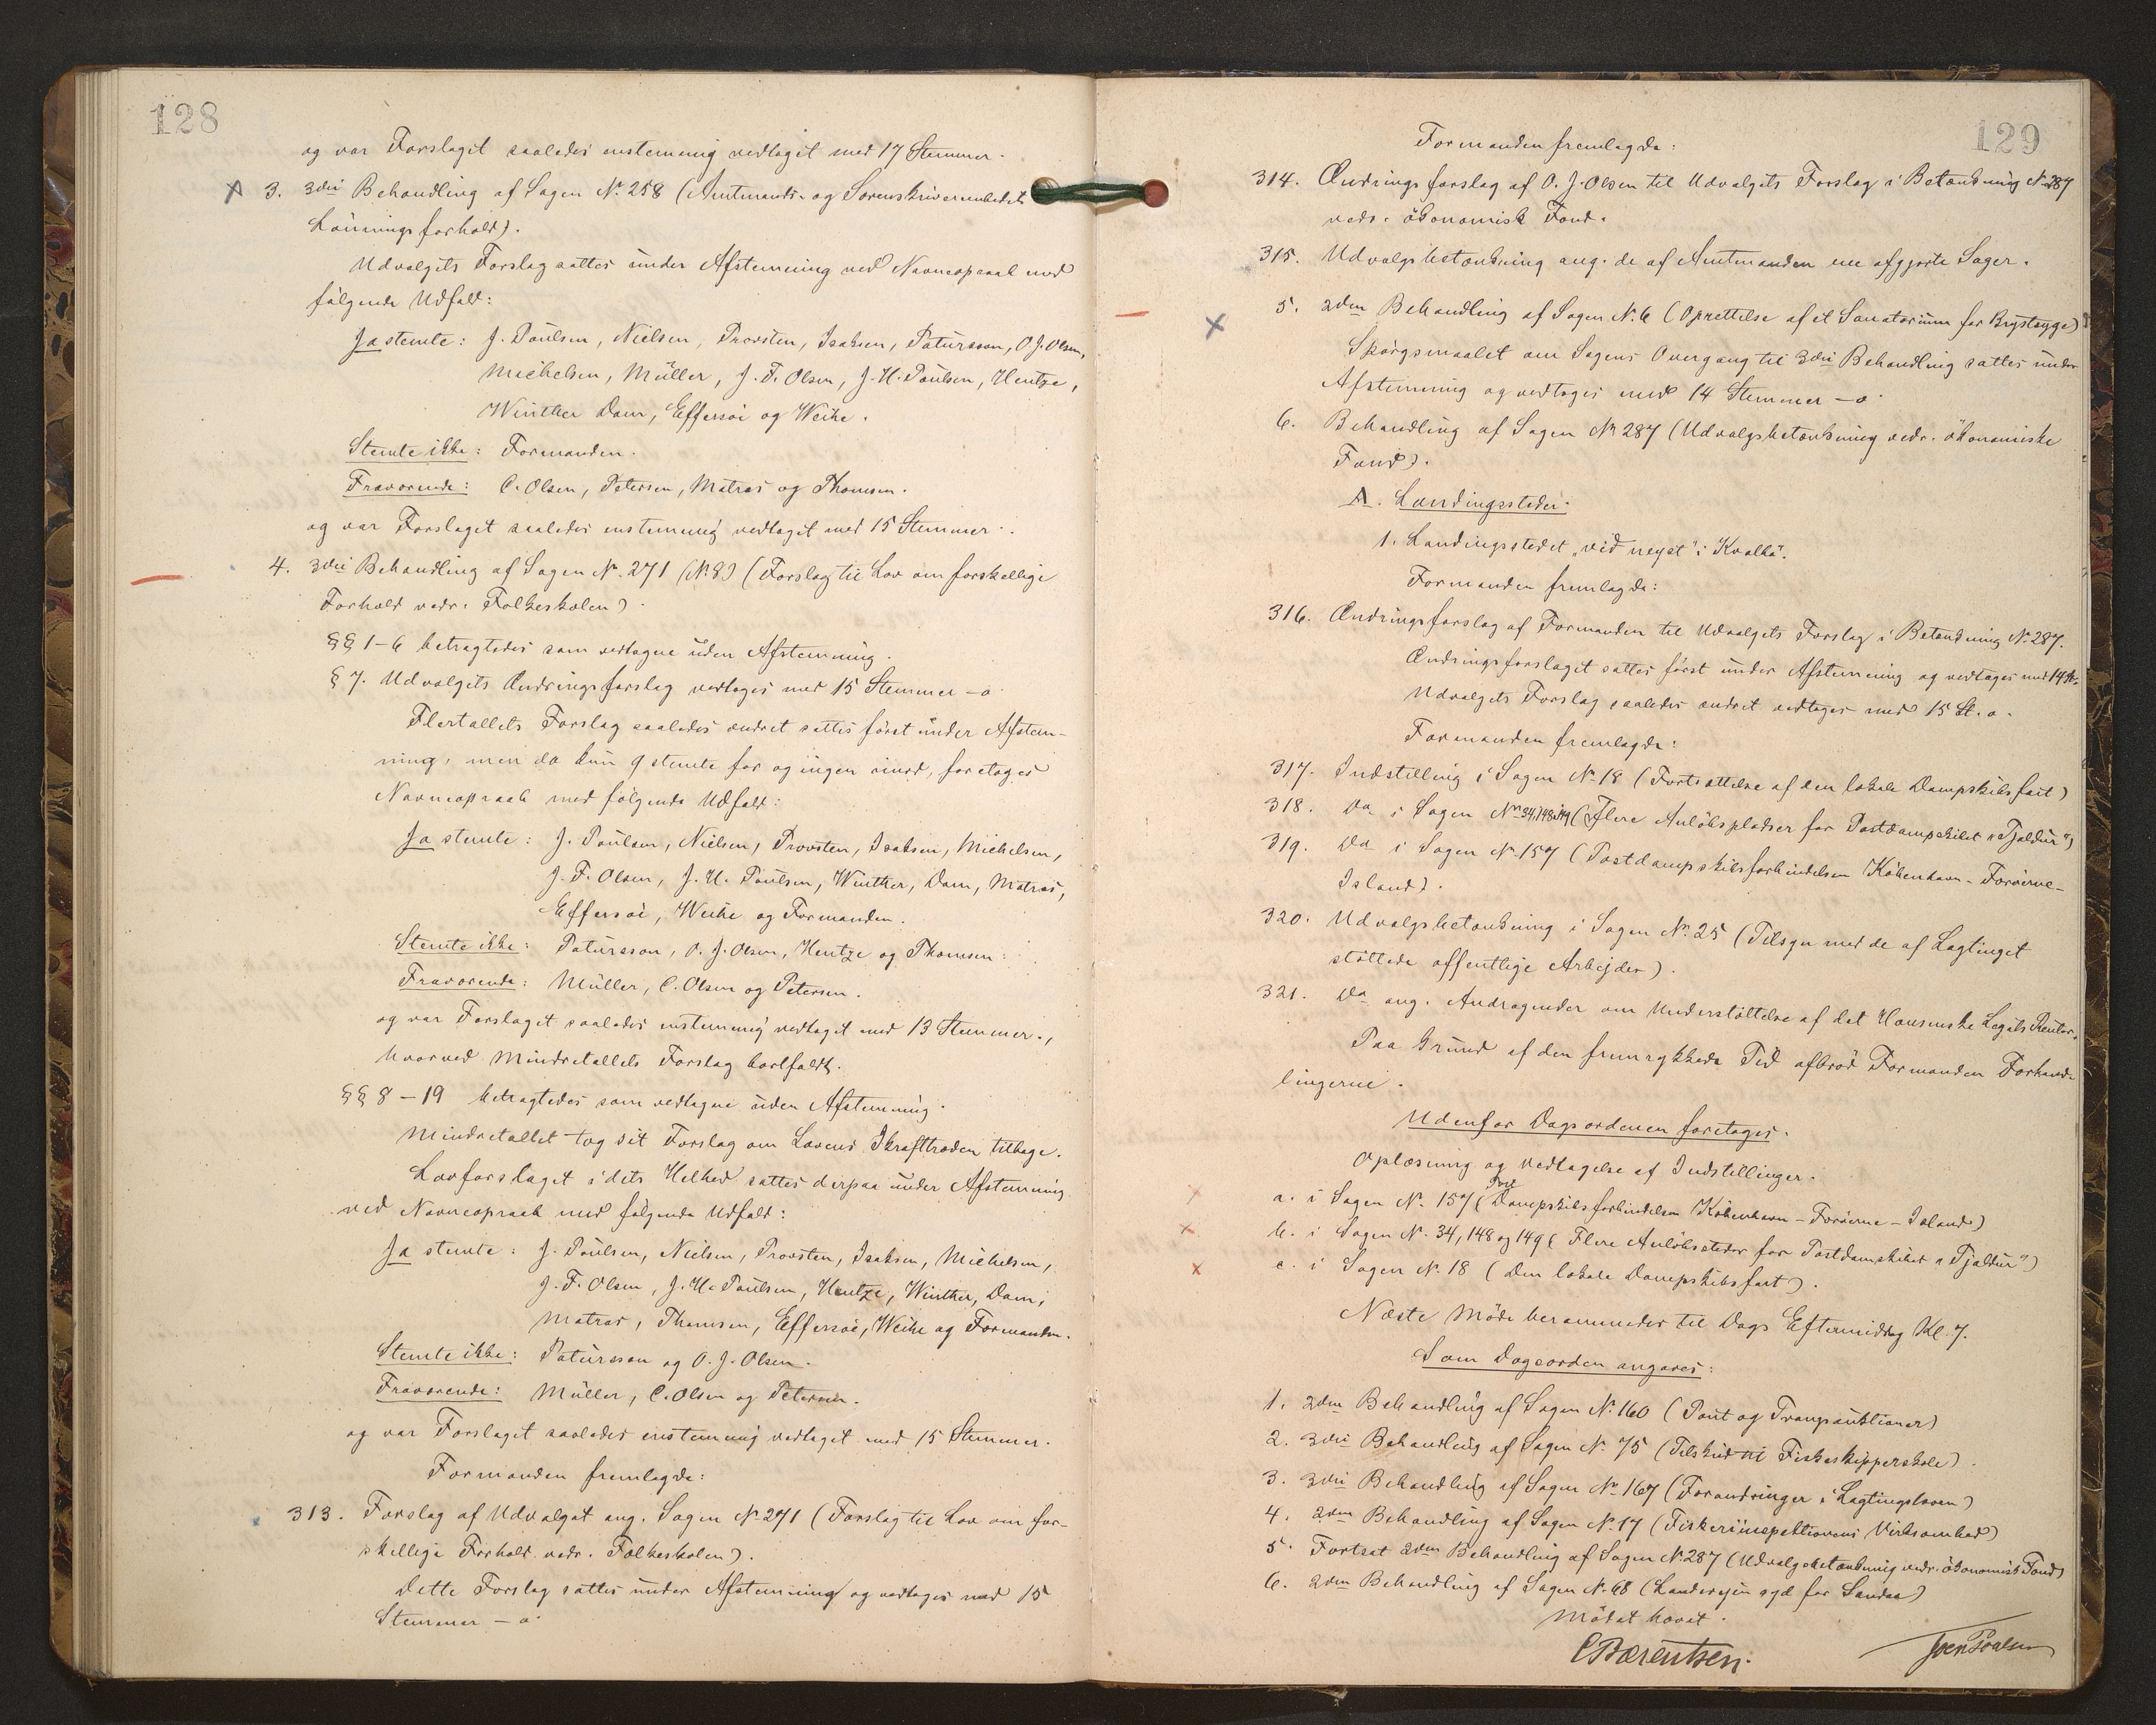 128
og var Forslaget saaledes enstemmig vedtaget med 17 Stemmer.
3. 3die Behandling af Sagen № 258 (Amtmands- og Sorenskriverembedets
Lønningsforhold).
Udvalgets Forslag sattes under Afstemning ved Navneopraab med
følgende Udfald:
Ja stemte: J. Poulsen, Nielsen, Provsten, Isaksen, Patursson, O. J. Olsen,
Michelsen, Müller, J. F. Olsen, J. H. Poulsen, Hentze,
Winther Dam, Effersøe og Weihe.
Stemte ikke: Formanden.
Fraværende: C. Olsen, Petersen, Matras og Thomsen.
og var Forslaget saaledes enstemmig vedtaget med 15 Stemmer.
4. 3die Behandling af Sagen № 271 (№ 8) (Forslag til Lov om forskellige
Forhold vedr. Folkeskolen).
§§ 1-6 betragtedes som vedtagne uden Afstemning.
§ 7. Udvalgets Ændringsforslag vedtoges med 15 Stemmer – o.
Flertallets Forslag saaledes ændret sattes først under Afstem-
ning, men da kun 9 stemte for og ingen imod, foretoges
Navneopraab med følgende Udfald:
Ja stemte: J. Poulsen, Nielsen, Provsten, Isaksen, Michelsen,
J. F. Olsen, J. H. Poulsen, Winther, Dam, Matras,
Effersøe, Weihe og Formanden.
Stemte ikke: Patursson, O. J. Olsen, Hentze og Thomsen.
Fraværende: Müller, C. Olsen og Petersen.
og var Forslaget saaledes enstemmig vedtaget med 13 Stemmer.,
hvorved Mindretallets Forslag bortfaldt.
§§ 8-19 betragtedes som vedtagne uden Afstemning.
Mindretallet tog sit Forslag om Lovens Ikrafttræden tilbage.
Lovforslaget i dets Helhed sattes derpaa under Afstemning
ved Navneopraab med følgende Udfald:
Ja stemte: J. Poulsen, Nielsen, Provsten, Isaksen, Michelsen,
J. F. Olsen, J. H. Poulsen, Hentze, Winther, Dam,
Matras, Thomsen, Effersøe, Weihe og Formanden.
Stemte ikke: Patursson og O. J. Olsen.
Fraværende: Müller, C. Olsen og Petersen.
og var Forslaget saaledes enstemmig vedtaget med 15 Stemmer.
Formanden fremlagde:
313. Forslag af Udvalget ang. Sagen № 271 (Forslag til Lov om for-
skellige Forhold vedr. Folkeskolen).
Dette Forslag sattes under Afstemning og vedtoges med 15
Stemmer – o.
129
Formanden fremlagde:
314. Ændringsforslag af O. J. Olsen til Udvalgets Forslag i Betænkning № 287
vedr. økonomisk Fond.
315. Udvalgsbetænkning ang. de af Amtmanden ene afgjorte Sager.
5. 2den Behandling af Sagen № 6 (Oprettelse af et Sanatorium for Brystsyge)
Spørgsmaalet om Sagens Overgang til 3die Behandling sattes under
Afstemning og vedtoges med 14 Stemmer – o.
6. Behandling af Sagen № 287 (Udvalgsbetænkning vedr. økonomiske
Fond).
A. Landingssteder.
1. Landingsstedet „við neyst" i Kvalbø.
Formanden fremlagde:
316. Ændringsforslag af Formanden til Udvalgets Forslag i Betænkning № 287.
Ændringsforslaget sattes først under Afstemning og vedtoges med 14 St.
Udvalgets Forslag saaledes ændret vedtoges med 15 St. o.
Formanden fremlagde:
317. Indstilling i Sagen № 18 (Fortsættelse af den lokale Dampskibsfart)
318. Do i Sagen № 34, 148, 149 (Flere Anløbspladser for Postdampskibet „Tjaldur")
319. Do i Sagen № 157 (Postdampskibsforbindelsen København-Færøerne-
Island).
320. Udvalgsbetænkning i Sagen № 25 (Tilsyn med de af Lagtinget
støttede offentlige Arbejder).
321. Do ang. Andragender om Understøttelse af det Hansenske Legats Renter.
Paa Grund af den fremrykkede Tid afbrød Formanden Forhand-
lingerne.
Udenfor Dagsordenen foretoges.
Oplæsning og Vedtagelse af Indstillinger.
a. i Sagen № 157 (Postdampskibsforbindelsen København-Færøerne-Island)
b. i Sagen № 34, 148 og 149 (Flere Anløbssteder for Postdamskibet „Tjaldur")
c. i Sagen № 18 (Den lokale Dampskibsfart).
Næste Møde berammedes til Dags Eftermiddag Kl. 7.
Som Dagsorden angaves:
1. 2den Behandling af Sagen № 160 (Pant og Tvangsauktioner)
2. 3die Behandling af Sagen № 75 (Tilskud til Fiskeskipperskole).
3. 3die Behandling af Sagen № 167 (Forandringer i Lagtingsloven)
4. 2den Behandling af Sagen № 17 (Fiskeriinspektionens Virksomhed)
5. Fortsat 2den Behandling af Sagen № 287 (Udvalgsbetænkning vedr. økonomisk Fond)
6. 2den Behandling af Sagen № 68 (Landevejen syd for Sandaa)
Mødet hævet.
C Bærentsen.
Joen Poulsen